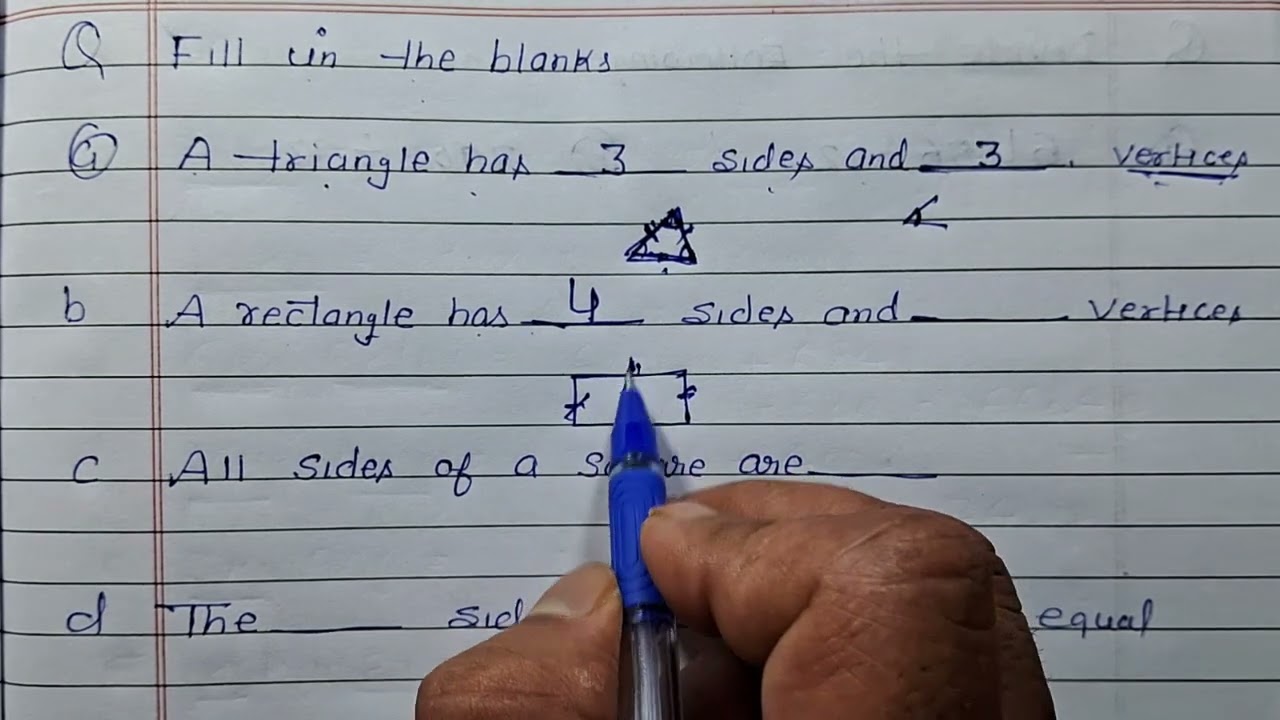 Q Fill in the blanks
a A triangle has 3 sides and 3 vertices
b A rectangle has 4 sides and ____ vertices
c All sides of a are ____
d The ____ equal